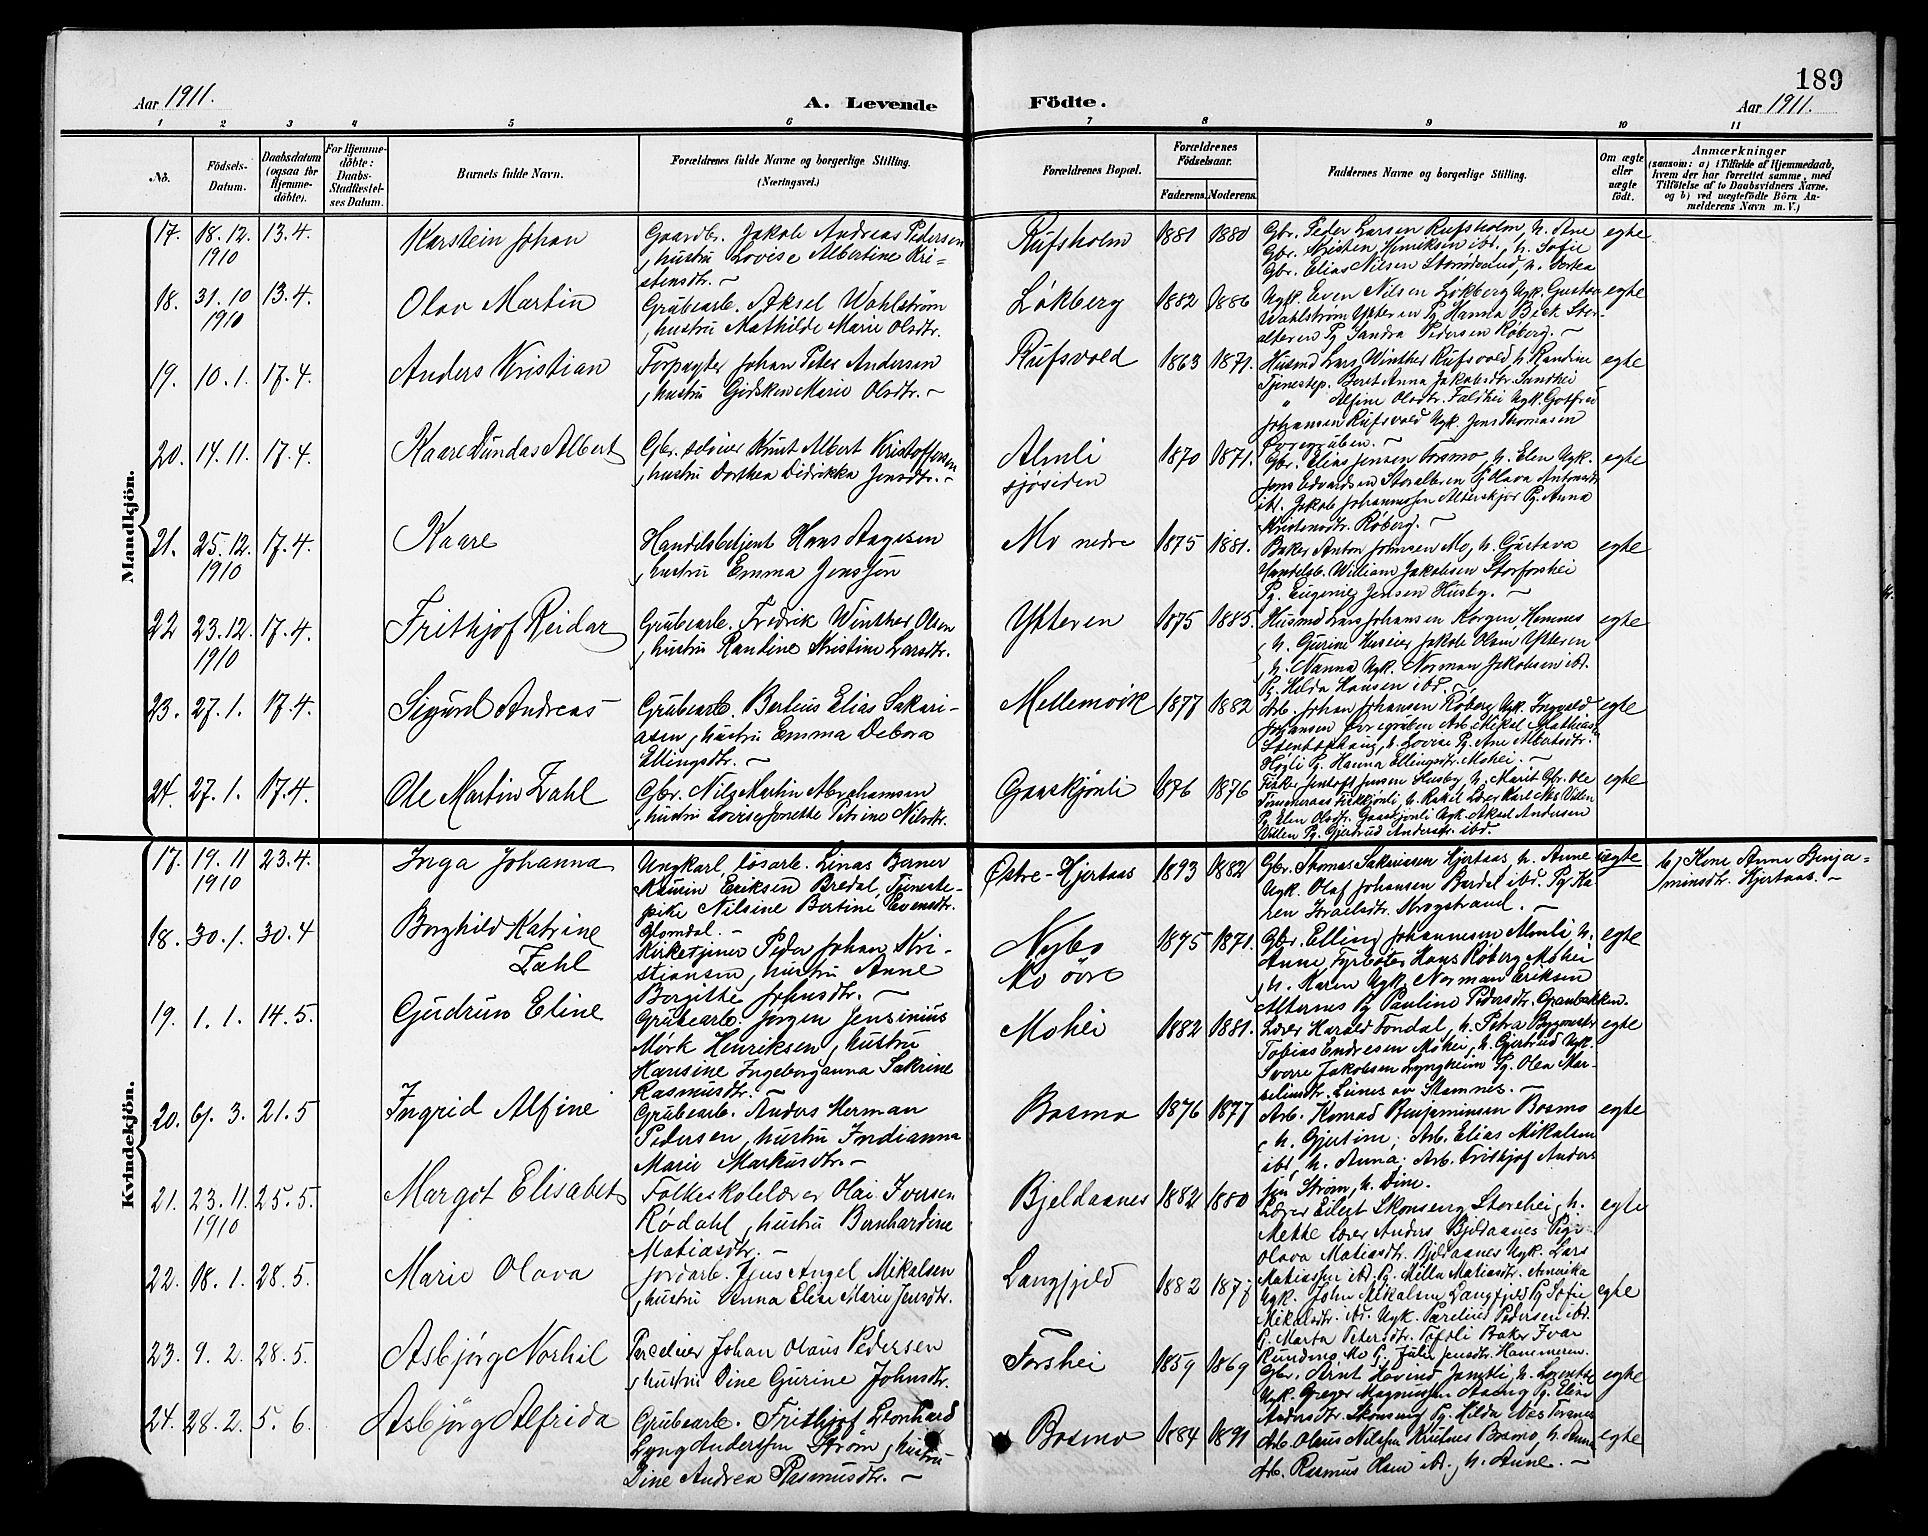 189
Aar 1911. A. Levende Födte. Aar 1911.
1 2 3 4 5 6 7 8 9 10 11
No. Födsels-Datum. Daabsdatum (ogsaa for Hjemme-döbte). For Hjemme-döbte: Daabs-Stadfæstel-ses Datum. Barnets fulde Navn. Forældrenes fulde Navne og borgerlige Stilling. (Næringsvei.) Forældrenes Bopæl. Forældrenes Födselsaar. Faderens. Moderens. Faddernes Navne og borgerlige Stilling. Om ægte eller uægte födt. Anmærkninger (saasom: a) i Tilfælde af Hjemmedaab, hvem der har forrettet samme, med Tilföielse af to Daabsvidners Navne, og b) ved uægtefödte Börn An-melderens Navn m. V.)
Mandkjön.
17. 18.12. 1910 13.4. Karstein Johan Gaardbr. Jakob Andreas Pedersen
, hustru Lovise Albertine Kri-
stensdtr. –
Rufsholm 1881 1880 Gbr. Peder Larsen Rufsholm, h. Ane
Gbr. Kristen Henriksen ibd., h. Sofie
Gbr. Elias Nilsen Storødeliud, h. Dortea
egte
18. 31.10 1910 13.4. Olav Martin Grubearb. Aksel Wahlström
, hustru Mathilde Marie Olsdtr.
Løkberg 1882 1886 Ugk. Even Nilsen Løkberg Ugk. Gustav
Wahlström Ytteren Pg. Hanna Bek Stor-
alteren Pg Sandra Pedersen Røberg. –
egte
19. 10.1. 17.4. Anders Kristian Forpagter Johan Peter Andersen
, hustru Gjertken Marie Olsdtr. –
Rufsvold 1863 1871. Husmd Lars Winther Rufsvold h. Randine
Tjenestep. Beret Anna Jakobsdtr. Sandhei
" Alfine Olsdtr. Falshei Ugk. Gotfred
Johansen Rufsvold Ugk. Jens Thomasen
Øvregruben. –
egte
20. 14.11. 17.4. Kaare Dundas Albert Gbr. seleier Knut Albert Kristoffersen
, hustru Dorthea Didrikka Jensdtr. –
Almli
sjösiden
1870 1871. Gbr. Elias Jensen Bosmo, h. Elen Ugk.
Jens Edvardsen Storalteren Pg Olava Antonsdtr
ibd. Jakob Johannesen Alterskjær Pg. Anna
Kristensdtr. Røberg. –
egte
21. 25.12. 1910 17.4. Kaare Handelsbetjent Hans Aagesen
, hustru Emma Jenssen
Mo nedre 1875 1881. Baker Anton Johnsen Mo, h. Gustava
Handelsb. William Jakobsen Storforshei
Pg. Eugenie Jensen Husby. –
egte
22 23.12. 1910 17.4. Frithjof Reidar Grubearb. Fredrik Winther Olsen
, hustru Randine Kristine Larsdtr.
Ytteren 1875 1885. Husmd Lars Johansen Korgen Hemnes
, h. Gurine Huseier Jakob Olsen Ytteren
, h. Nanna Ugk. Norman Jakobsen ibd.
Pg. Hilda Hansen ibd. –
egte
23. 27.1. 17.4. Sigurd Andreas Grubearb. Bertius Elias Sakari-
asen, hustru Emma Debora
Ellingsdtr. –
Mellemvik 1877 1882 Arb. Johan Johansen Røberg Ugk. Ingvald
Johansen Øvregruben Arb. Mikal Mathias
h. Lovise Pg. Ane Albertsdtr.
Høgli Pg. Hanna Ellingsdtr. Mohei. –
egte
24. 27.1. 17.4. Ole Martin Zahl Gbr. Nils Martin Abrahamsen
, hustru Lovise Jonette Petrine Nilsdtr.
Gaaskjönli 1876 1876 Fisker Jentoft Jensen Husby h. Marit Gbr. Ole
h. Rakel Lærer Karl
Pg. Elen Olsdtr. Gaaskjönli Ugk. Aksel Andersen
Villen Pg. Gjertrud Andersdtr ibd.
egte
Kvindekjön.
17. 19.11 1910 23.4. Inga Johanna Ungkarl, løsarb. Linas Berner
Kasvin Eriksen Bredal, Tjeneste-
pike Nilsine Bertine Evensdtr.
Glomdal. –
Østre-Hjertaas 1893 1882 Gbr. Thomas Sakariasen Hjertaas h. Anne
Ugk. Olaf Johansen Bardal ibd. Pg Ka-
ren Israelsdtr. Krogstrand. –
uegte b) Kone Anne Benja-
minsdtr. Hjertaas. –
18. 30.1. 30.4 Borghild Katrine
Zahl
Kirketjener Peder Johan Kri-
stiansen, hustru Anne
Bergitte Johnsdtr. –
Nybo
Mo övre
1875 1871. Gbr. Elling Johannesen Almli h.
Anne Fyrbøter Hans Røberg Mohei
, h. Karen Ugk. Norman Eriksen
Alternes Pg Pauline Pedersdtr. Granbakken.
egte
19. 1.1. 14.5. Gudrun Eline Grubearb. Jørgen Jensinius
Mörk Henriksen, hustru
Hansine Ingeborganna Sakrine
Rasmusdtr. –
Mohei 1882 1881. Lærer Harald Tondal, h. Petra Bygmester
Tobias Endresen Mohei, h. Gjertrud Ugk.
Sverre Jakobsen Lyngheim Pg. Olea Mar-
selinsdtr. Leines av Stamnes. –
egte
20. 6. 3. 21.5 Ingrid Alfine Grubearb. Anders Herman
Pedersen, hustru Indianna
Marie Markusdtr. –
Bosmo 1876 1877 Arb. Konrad Benjaminsen Bosmo
, h. Gjertine, Arb. Elias Mikalsen
ibd, h. Anna, Arb. Frithjof Anders
sen Strøm, h. Dine.
egte
21. 23.11. 1910 25.5. Margot Elisabet Folkeskolelærer Olai Iversen
Rødahl, hustru Bernhardine
Matiasdtr. –
Bjeldaanes 1882 1880 Lærer Eilert Skonseng Storehei, h.
Mette Lærer Anders Bjeldaanes Pige
Olava Matiasdtr. Bjeldaanes Ugk. Lars
Matiassen ibd. Pg. Milla Matiasdtr. Amerika
egte
22. 18.1. 28.5. Marie Olava Jordarb. Jens Angel Mikalsen
, hustru Anna Elise Marie Jensdtr.
Langfjeld 1882 1877 Ugk. John Mikalsen Langfjeld Pg Sofie
Mikalsdtr. ibd. Ugk. Parelius Pedersen ibd.
Pg. Marta Petersdtr. Tofoli Baker Ivar
Rundmo Mo Pg. Julie Jensdtr. Hammeren.
egte
23. 9. 2. 28.5. Asbjörg Norhil Parceleier Johan Olaus Pedersen
, hustru Dine Gurine Johnsdtr.
Forshei 1859 1869 Gbr. Arnt Hovind Jamtli, h. Lorentse
Ugk. Greger Magnussen Aaeng Pg. Elise
Andersdtr. Skonseng Pg. Hilda
egte
24. 28.2. 5. 6. Asbjörg Alfrida Grubearb. Frithjof Leonhard
Lyng Anderssen Strøm, hustru
Dine Andrea Rasmusdtr. –
Bosmo 1884 1891 Arb. Olaus Nilssen Krutnes Bosmo, h. Anna
Arb. Rasmus Olsen ibd., h. Anne. –
egte